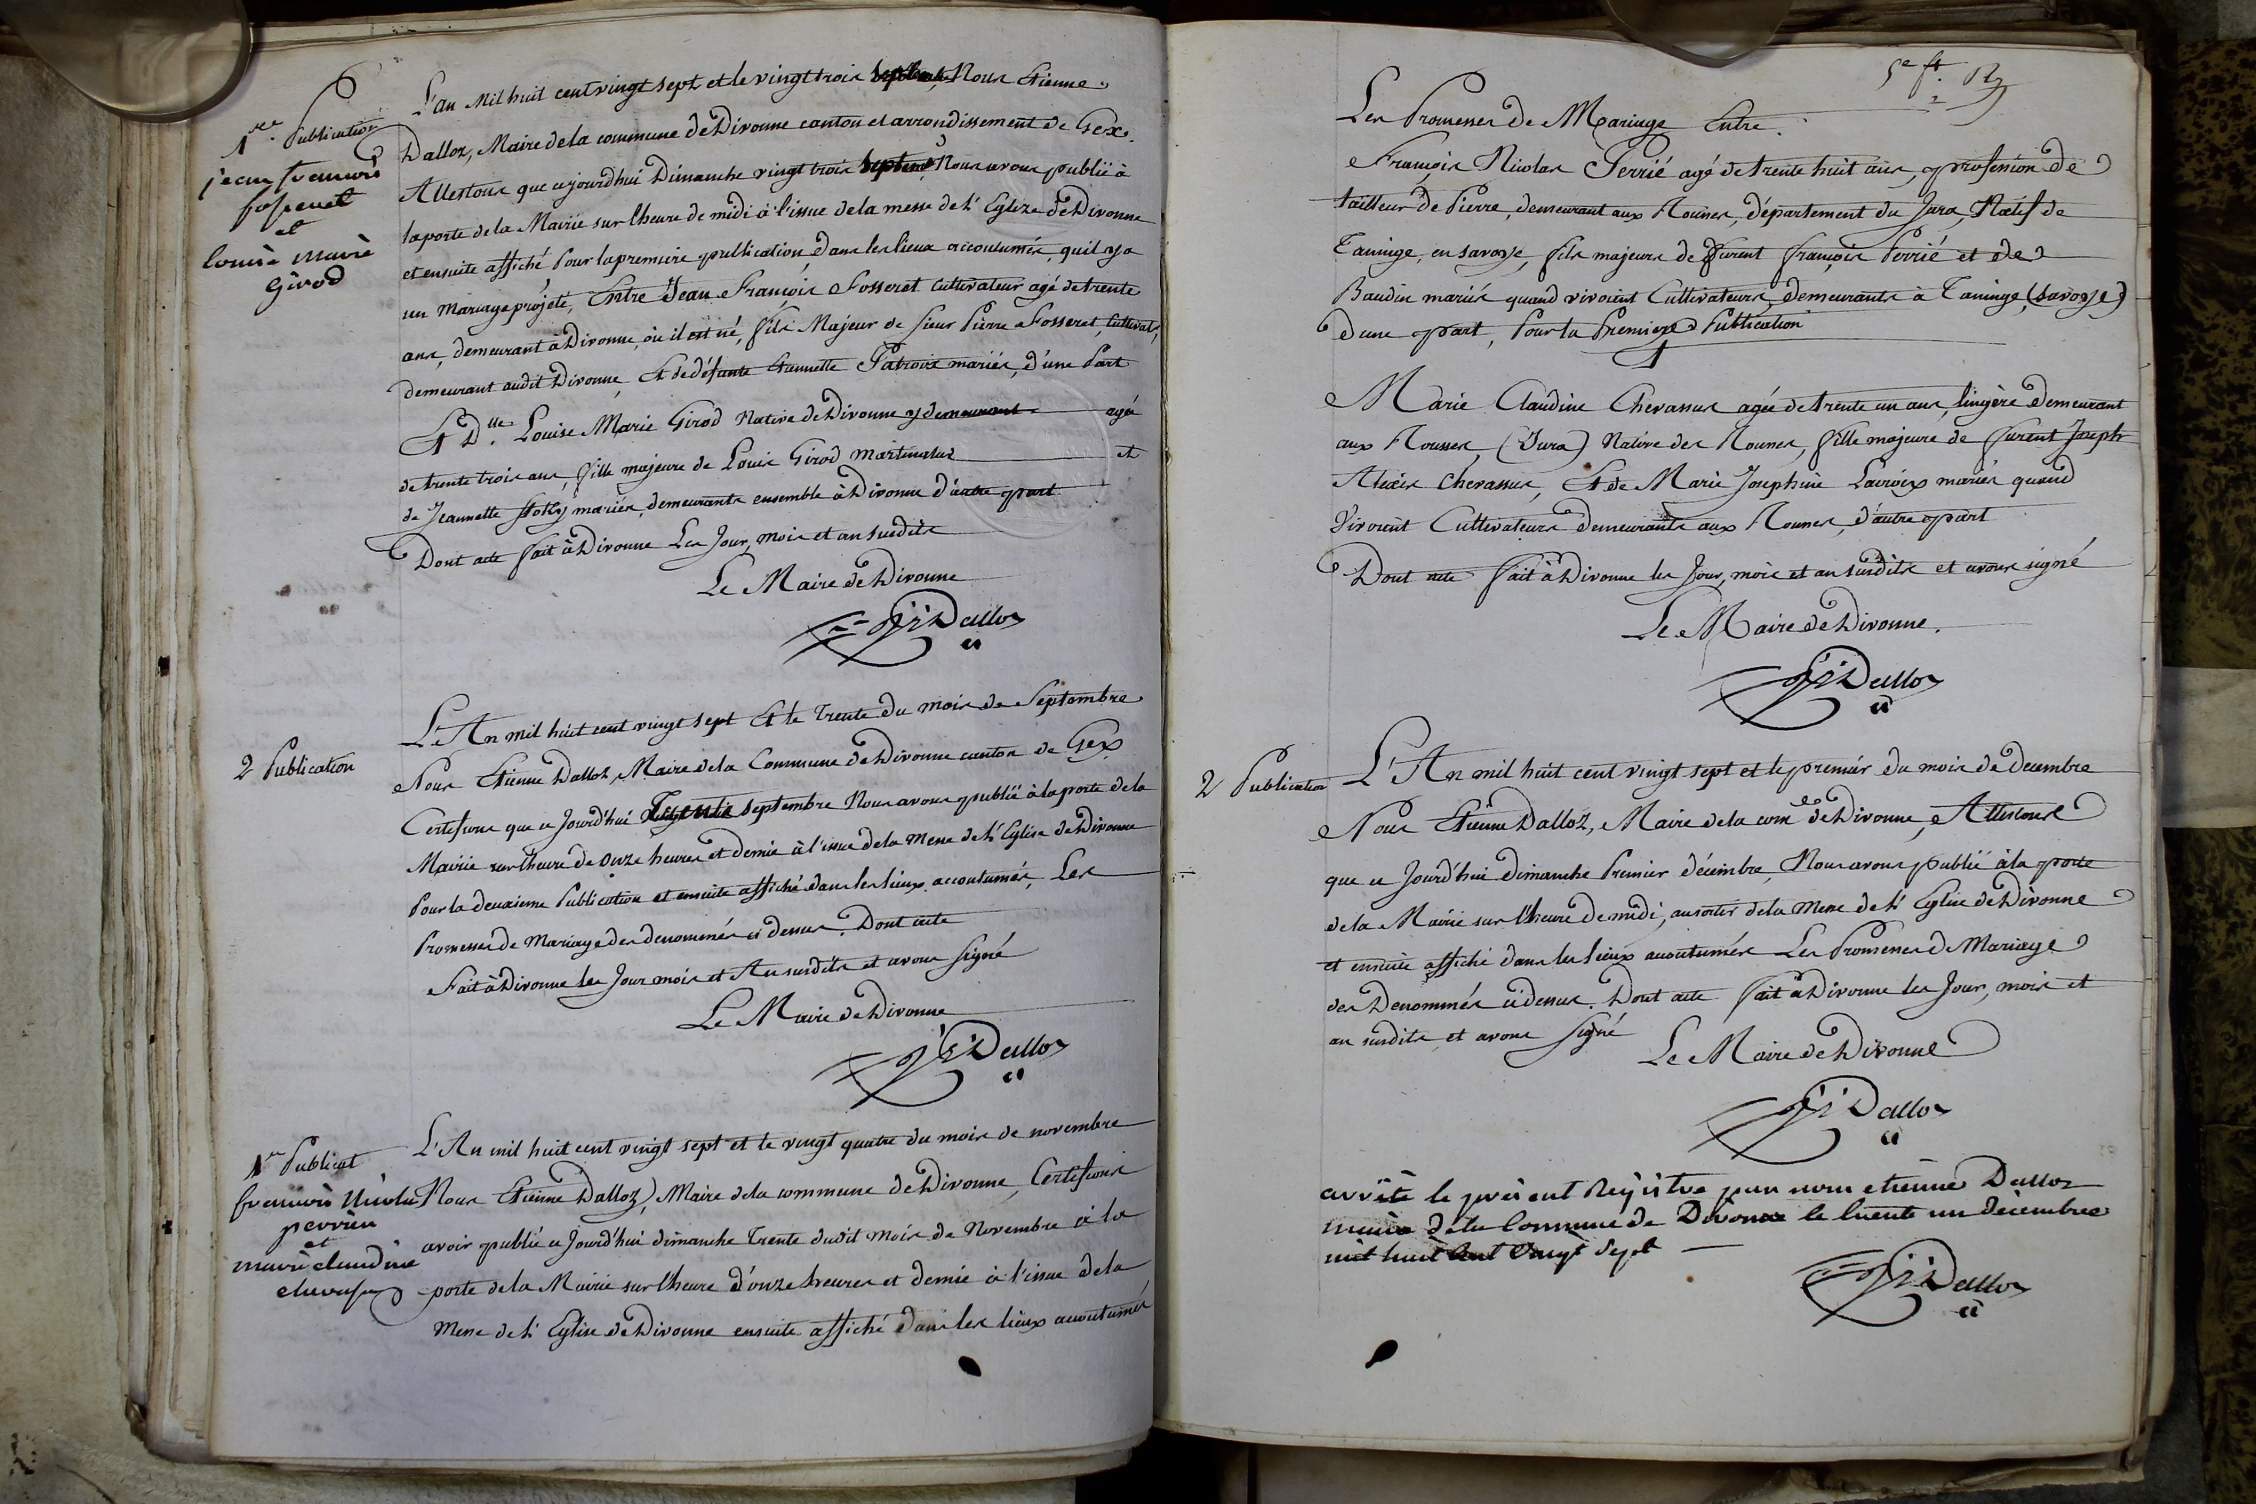 1re Publication
jean francois
fosseret
et
louise marie
Girod
L'an Mil huit cent vingt sept et le vingt trois Septembre, Nous Etienne
Dalloz, Maire de la commune de Divonne canton et arrondissement de Gex.
Attestons que cejourdhui Dimanche vingt trois Septembre, Nous avons publié à
la porte de la Mairie sur lheure de midi à l'issue de la messe de l'Eglize de Divonne
et ensuite affiché Pour la premiere publication dans les lieux accoutumés quil y a
un Mariage projeté, Entre Jean François Fosseret Cultivateur agé de trente
ans, demeurant à Divonne, où il est né, fils Majeur de sieur Pierre Fosseret, Cultivatr,
demeurant audit Divonne, Et de défunte Etiennette Patrois mariés, d'une Part
Et Dlle. Louise Marie Girod Native de Divonne y demeurant agée
de trente trois ans, fille majeure de Louis Girod Martinetus et
de Jeannette mariés, demeurants ensemble à Divonne d'autre part
Dont acte fait à Divonne Les Jour, mois et an susdits
Le Maire de Divonne
Dalloz
2 Publication
L'An mil huit cent vingt sept Et le Trente du mois de Septembre
Nous Etienne Dalloz, Maire de la Commune de Divonne canton de Gex
Certifions que ce Jourd'hui Trente Septembre Nous avons publié à la porte de la
Mairie sur l'heure de onze heures et demie à l'issue de la Messe de l'Eglise de Divonne
Pour la deuxieme Publication et ensuite affiché dans les lieux accoutumés, Les
Promesses de Mariage des denommés ci dessus. Dont acte
Fait à Divonne les Jour mois et An susdits et avons signé
Le Maire de Divonne
Dalloz
1re Publicat
francois Nicolas
perrier
et
marie claudine
chevassus
L'An mil huit cent vingt sept et le vingt quatre du mois de novembre
Nous Etienne Dalloz, Maire de la commune de Divonne, Certifions
avoir publié ce Jourd'hui dimanche Trente dudit Mois de Novembre à la
porte de la Mairie sur l'heure d'onze heures et demie à l'issue de la
Messe de l'Eglise de Divonne ensuite affiché dans les lieux accoutumés
5e ft.
2
Les Promesses de Mariage Entre.
François Nicolas Perrié agé de trente huit ans, profession de
tailleur de Pierre, demeurant aux Rousses, département du Jura, Natif de
Taninge, en savoye, fils majeurs de furent françois Perrié et de
Baudin mariés quand vivoient Cultivateurs, demeurants à Taninge, (savoye)
d'une part, Pour la Premiere Publication
Et
Marie Claudine Chevassus agée de trente un ans, lingère demeurant
aux Rousses, (Jura) Native des Rousses, fille majeure de furent Joseph
Alexis Chevassus, Et de Marie Josephine Lacroix mariés quand
Vivoient Cultivateurs demeurants aux Rousses, d'autre part
Dont acte fait à Divonne les Jour, mois et an susdits et avons signé
Le Maire de Divonne.
Dalloz
2 Publication
L'An mil huit cent vingt sept et le premier du mois de decembre
Nous Etienne Dalloz, Maire de la come de Divonne, Attestons
que ce Jourd'hui dimanche Premier décembre, Nous avons publié à la porte
de la Mairie sur l'heure de midi, au sortir de la Messe de l'Eglise de Divonne
et ensuite affiché dans les lieux accoutumés Les Promesses de Mariage
des Denommés ci dessus. Dont acte fait à Divonne les Jour, mois et
an susdits et avons signé
Le Maire de Divonne
Dalloz
arrêté le présent Registre par nous etienne Dalloz
maire de la Commune de Divonne le trente un décembre
mil huit cent vingt sept
Dalloz